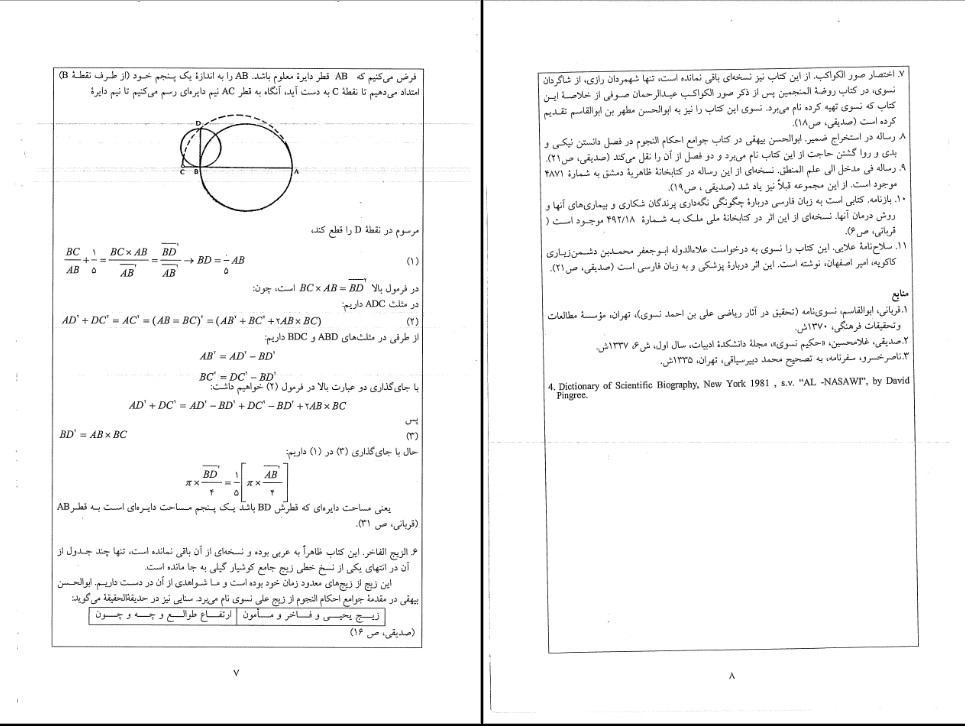 فرض می‌کنیم که AB قطر دایرهٔ معلوم باشد. AB را به اندازهٔ یک پنجم خود (از طرف نقطهٔ B)
امتداد می‌دهیم تا نقطهٔ C به دست آید، آنگاه به قطر AC نیم دایره‌ای رسم می‌کنیم تا نیم دایرهٔ
D
C B A
مرسوم در نقطهٔ D را قطع کند،
BC/AB + ۱/۵ = BC × AB/AB² = BD²/AB² → BD = ۱/۵ AB (۱)
در فرمول بالا BC × AB = BD² است، چون:
در مثلث ADC داریم:
AD² + DC² = AC² = (AB = BC)² = (AB² + BC² + ۲AB × BC) (۲)
از طرفی در مثلث‌های ABD و BDC داریم:
AB² = AD² − BD²
BC² = DC² − BD²
با جای‌گذاری دو عبارت بالا در فرمول (۲) خواهیم داشت:
AD² + DC² = AD² − BD² + DC² − BD² + ۲AB × BC
پس
BD² = AB × BC (۳)
حال با جای‌گذاری (۳) در (۱) داریم:
π × BD²/۴ = ۱/۵ [π × AB²/۴]
یعنی مساحت دایره‌ای که قطرش BD باشد یک پنجم مساحت دایره‌ای است به قطر AB
(قربانی، ص ۳۱).
۶. الزیج الفاخر. این کتاب ظاهراً به عربی بوده و نسخه‌ای از آن باقی نمانده است، تنها چند جدول از
آن در انتهای یکی از نسخ خطی زیج جامع کوشیار گیلی به جا مانده است.
این زیج از زیج‌های معدود زمان خود بوده است و ما شواهدی از آن در دست داریم. ابوالحسن
بیهقی در مقدمهٔ جوامع احکام النجوم از زیج علی نسوی نام می‌برد. سنایی نیز در حدیقةالحقیقة می‌گوید:
زیج یحیی و فاخر و مأمون ارتفاع طوالع و چه و چون
(صدیقی، ص ۱۶)
۷
۷. اختصار صور الکواکب. از این کتاب نیز نسخه‌ای باقی نمانده است، تنها شهمردان رازی، از شاگردان
نسوی، در کتاب روضة المنجمین پس از ذکر صور الکواکب عبدالرحمان صوفی از خلاصهٔ این
کتاب که نسوی تهیه کرده نام می‌برد. نسوی این کتاب را نیز به ابوالحسن مطهر بن ابوالقاسم تقدیم
کرده است (صدیقی، ص۱۸).
۸. رساله در استخراج ضمیر. ابوالحسن بیهقی در کتاب جوامع احکام النجوم در فصل دانستن نیکی و
بدی و روا گشتن حاجت از این کتاب نام می‌برد و دو فصل از آن را نقل می‌کند (صدیقی، ص۲۱).
۹. رساله فی مدخل الی علم المنطق. نسخه‌ای از این رساله در کتابخانهٔ ظاهریهٔ دمشق به شمارهٔ ۴۸۷۱
موجود است. از این مجموعه قبلاً نیز یاد شد (صدیقی ، ص۱۹).
۱۰. بازنامه. کتابی است به زبان فارسی دربارهٔ چگونگی نگه‌داری پرندگان شکاری و بیماری‌های آنها و
روش درمان آنها. نسخه‌ای از این اثر در کتابخانهٔ ملی ملک به شمارهٔ ۴۹۲/۱۸ موجود است (
قربانی، ص۶).
۱۱. سلاح‌نامهٔ علایی. این کتاب را نسوی به درخواست علاءالدوله ابوجعفر محمدبن دشمن‌زیاری
کاکویه، امیر اصفهان، نوشته است. این اثر دربارهٔ پزشکی و به زبان فارسی است (صدیقی، ص۲۱).
منابع
۱.قربانی، ابوالقاسم، نسوی‌نامه (تحقیق در آثار ریاضی علی بن احمد نسوی)، تهران، مؤسسهٔ مطالعات
وتحقیقات فرهنگی، ۱۳۷۰ش.
۲.صدیقی، غلامحسین، «حکیم نسوی»، مجلهٔ دانشکدهٔ ادبیات، سال اول، ش۶، ۱۳۳۷ش.
۳.ناصرخسرو، سفرنامه، به تصحیح محمد دبیرسیاقی، تهران، ۱۳۳۵ش.
4. Dictionary of Scientific Biography, New York 1981 , s.v. “AL -NASAWI”, by David
Pingree.
۸